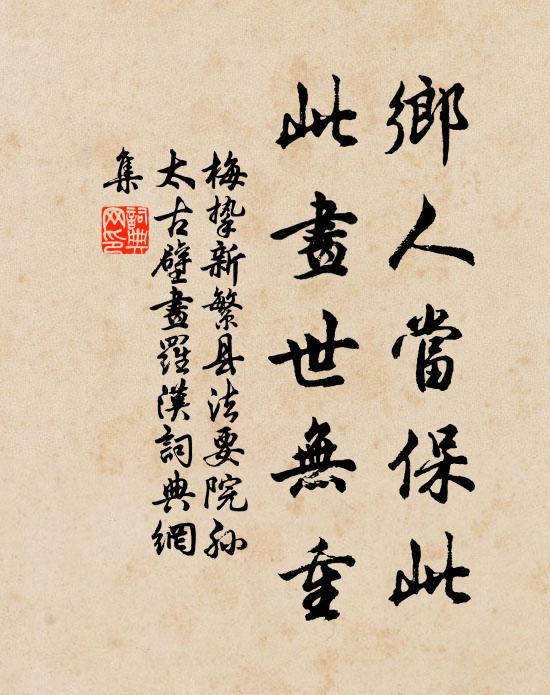 鄉人當保此
此畫世無重
梅摯新繁县法要院孙
太古壁畫羅漢詞典網
集
詞典
网印